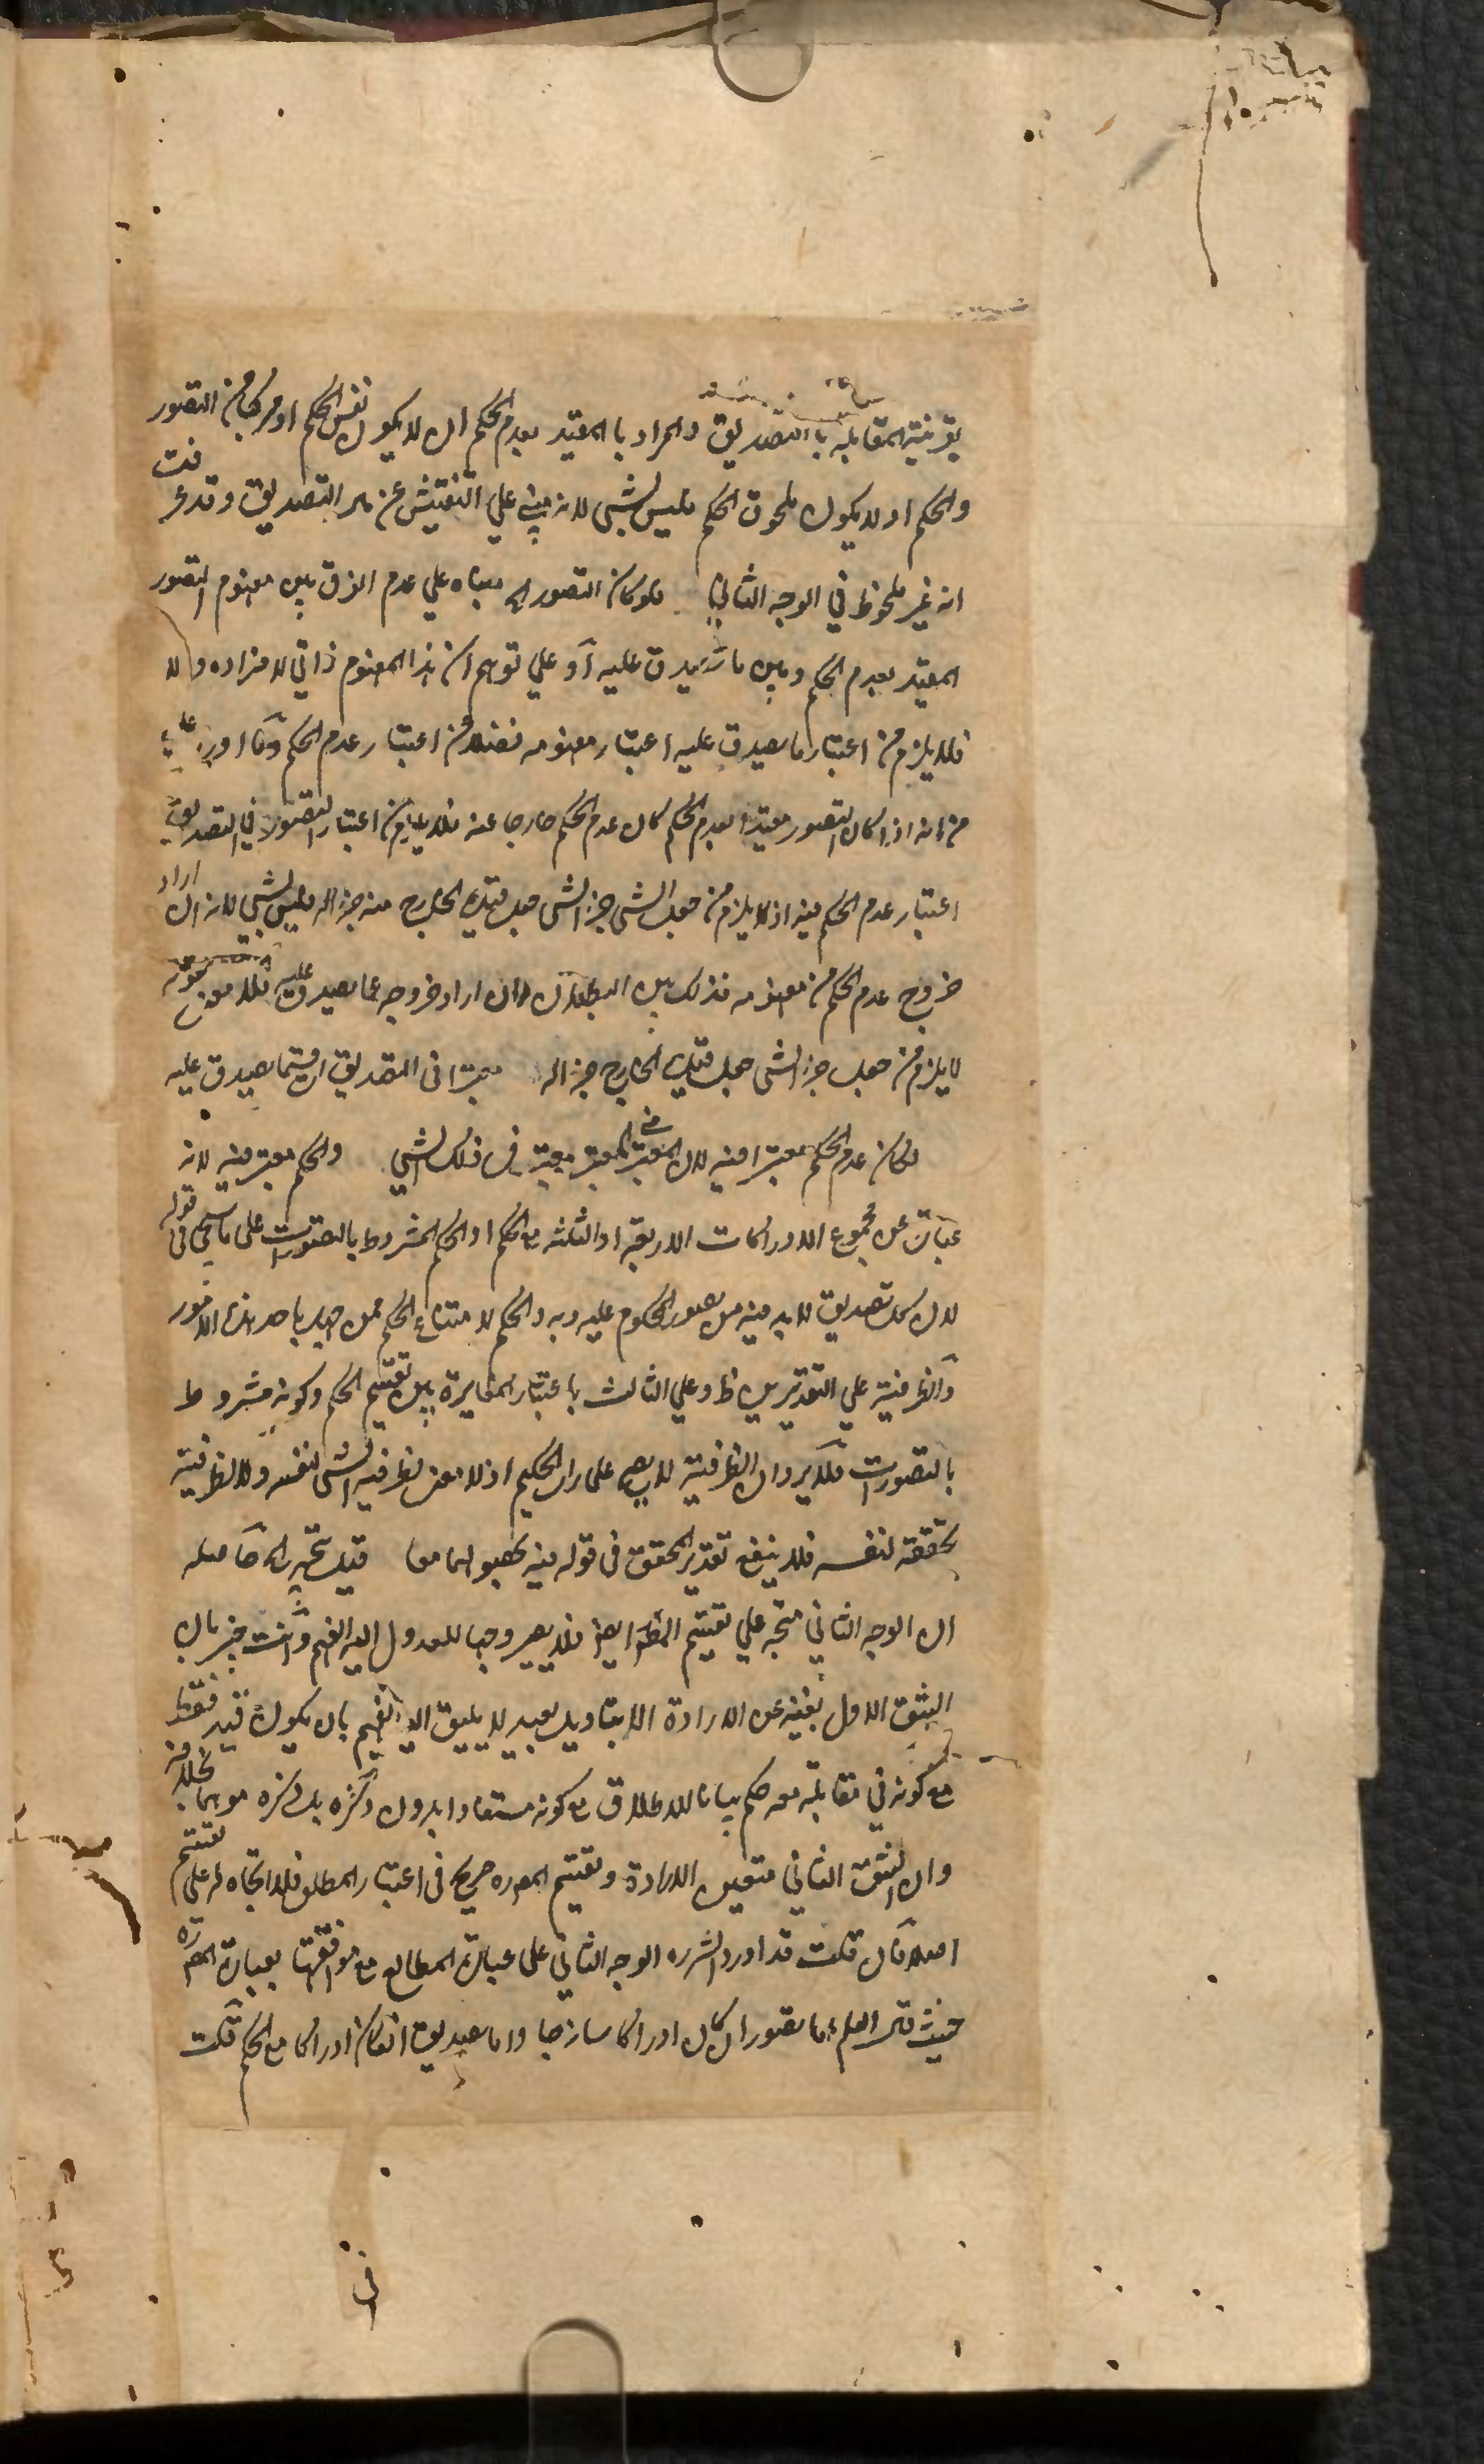 بقرينة المقابلة بالتصديق والمراد بالمقيد بعدم الحكم ان لا يكون نفس الحكم او مركبا من التصور
والحكم او لا يكون ملحوق الحكم فليس بشئ لانه مبني علي التفتيش عن التصديق وقد عرفت
انه غير ملحوظ في الوجه الثاني فلو كان التصور اه مبناه علي عدم الفرق بين مفهوم التصور
المقيد بعدم الحكم وبين ما يصدق عليه او علي توهم ان هذا المفهوم ذاتي لافراده ولا
فلا يلزم من اعتبار ما يصدق عليه اعتبار مفهومه فضلا من اعتبار عدم الحكم وما اورد عليه
من انه اذا كان التصور مقيدا بعدم الحكم كان عدم الحكم خارجا عنه فلا يلزم من اعتبار التصور في التصديق
اعتبار عدم الحكم فيه اذ لا يلزم من جعل الشئ جزء الشئ جعل قيده الخارج منه جزءا له فليس بشئ لانه ان اراد
خروج عدم الحكم من مفهومه فذلك بين البطلان وان اراد خروجه عما يصدق عليه فلا معنى لقوله
لا يلزم من جعل جزء الشئ جعل قيده الخارج جزءا له معتبرا في التصديق اي قسما يصدق عليه
لكان عدم الحكم معتبرا فيه لان المعتبر في المعتبر معتبر في ذلك الشئ والحكم معتبر فيه لانه
عبارة عن مجموع الادراكات الاربعة او الثلثة مع الحكم او الحكم المشروط بالتصورات على ما سيجئ في قوله
لان كل تصديق لا بد فيه من تصور المحكوم عليه وبه والحكم لامتناع الحكم ممن جهل باحد هذه الامور
والظرفية علي التقديرين ظ وعلي الثالث باعتبار المغايرة بين تقسيم الحكم وكونه مشروطا
بالتصورات فلا يرد ان الظرفية لا يصح على راى الحكيم اذ لا معنى لظرفية الشئ لنفسه ولا لظرفية
تحققه لنفسه فلا ينفع تقدير التحقق في قوله فيه قيل يتجه اه حاصله
ان الوجه الثاني متجه علي تقسيم المصه ايضا فلا يصير وجها للعدول اليه الفهم وانت خبير بان
الشق الاول بقية عن الارادة الا بتاويل بعيد لا يليق اليه الفهم بان يكون قيد فقط
مع كونه في مقابلة معه حكم بيانا للاطلاق مع كونه مستفادا بدون ذكره بل ذكره موهما بخلافه
وان الشق الثاني متعين الارادة وتقسيم المصره صريح في اعتبار المطلق فلا اتجاه له على تقسيم
اصلا فان قلت قد اورد الشره الوجه الثاني على عبارة المطالع مع موافقتها بعبارة المصره
حيث قال العلم اما تصور ان كان ادراكا ساذجا واما تصديق ان كان ادراكا مع الحكم قلت